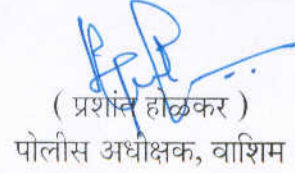 ( प्रशांत होळकर )
पोलीस अधीक्षक, वाशिम